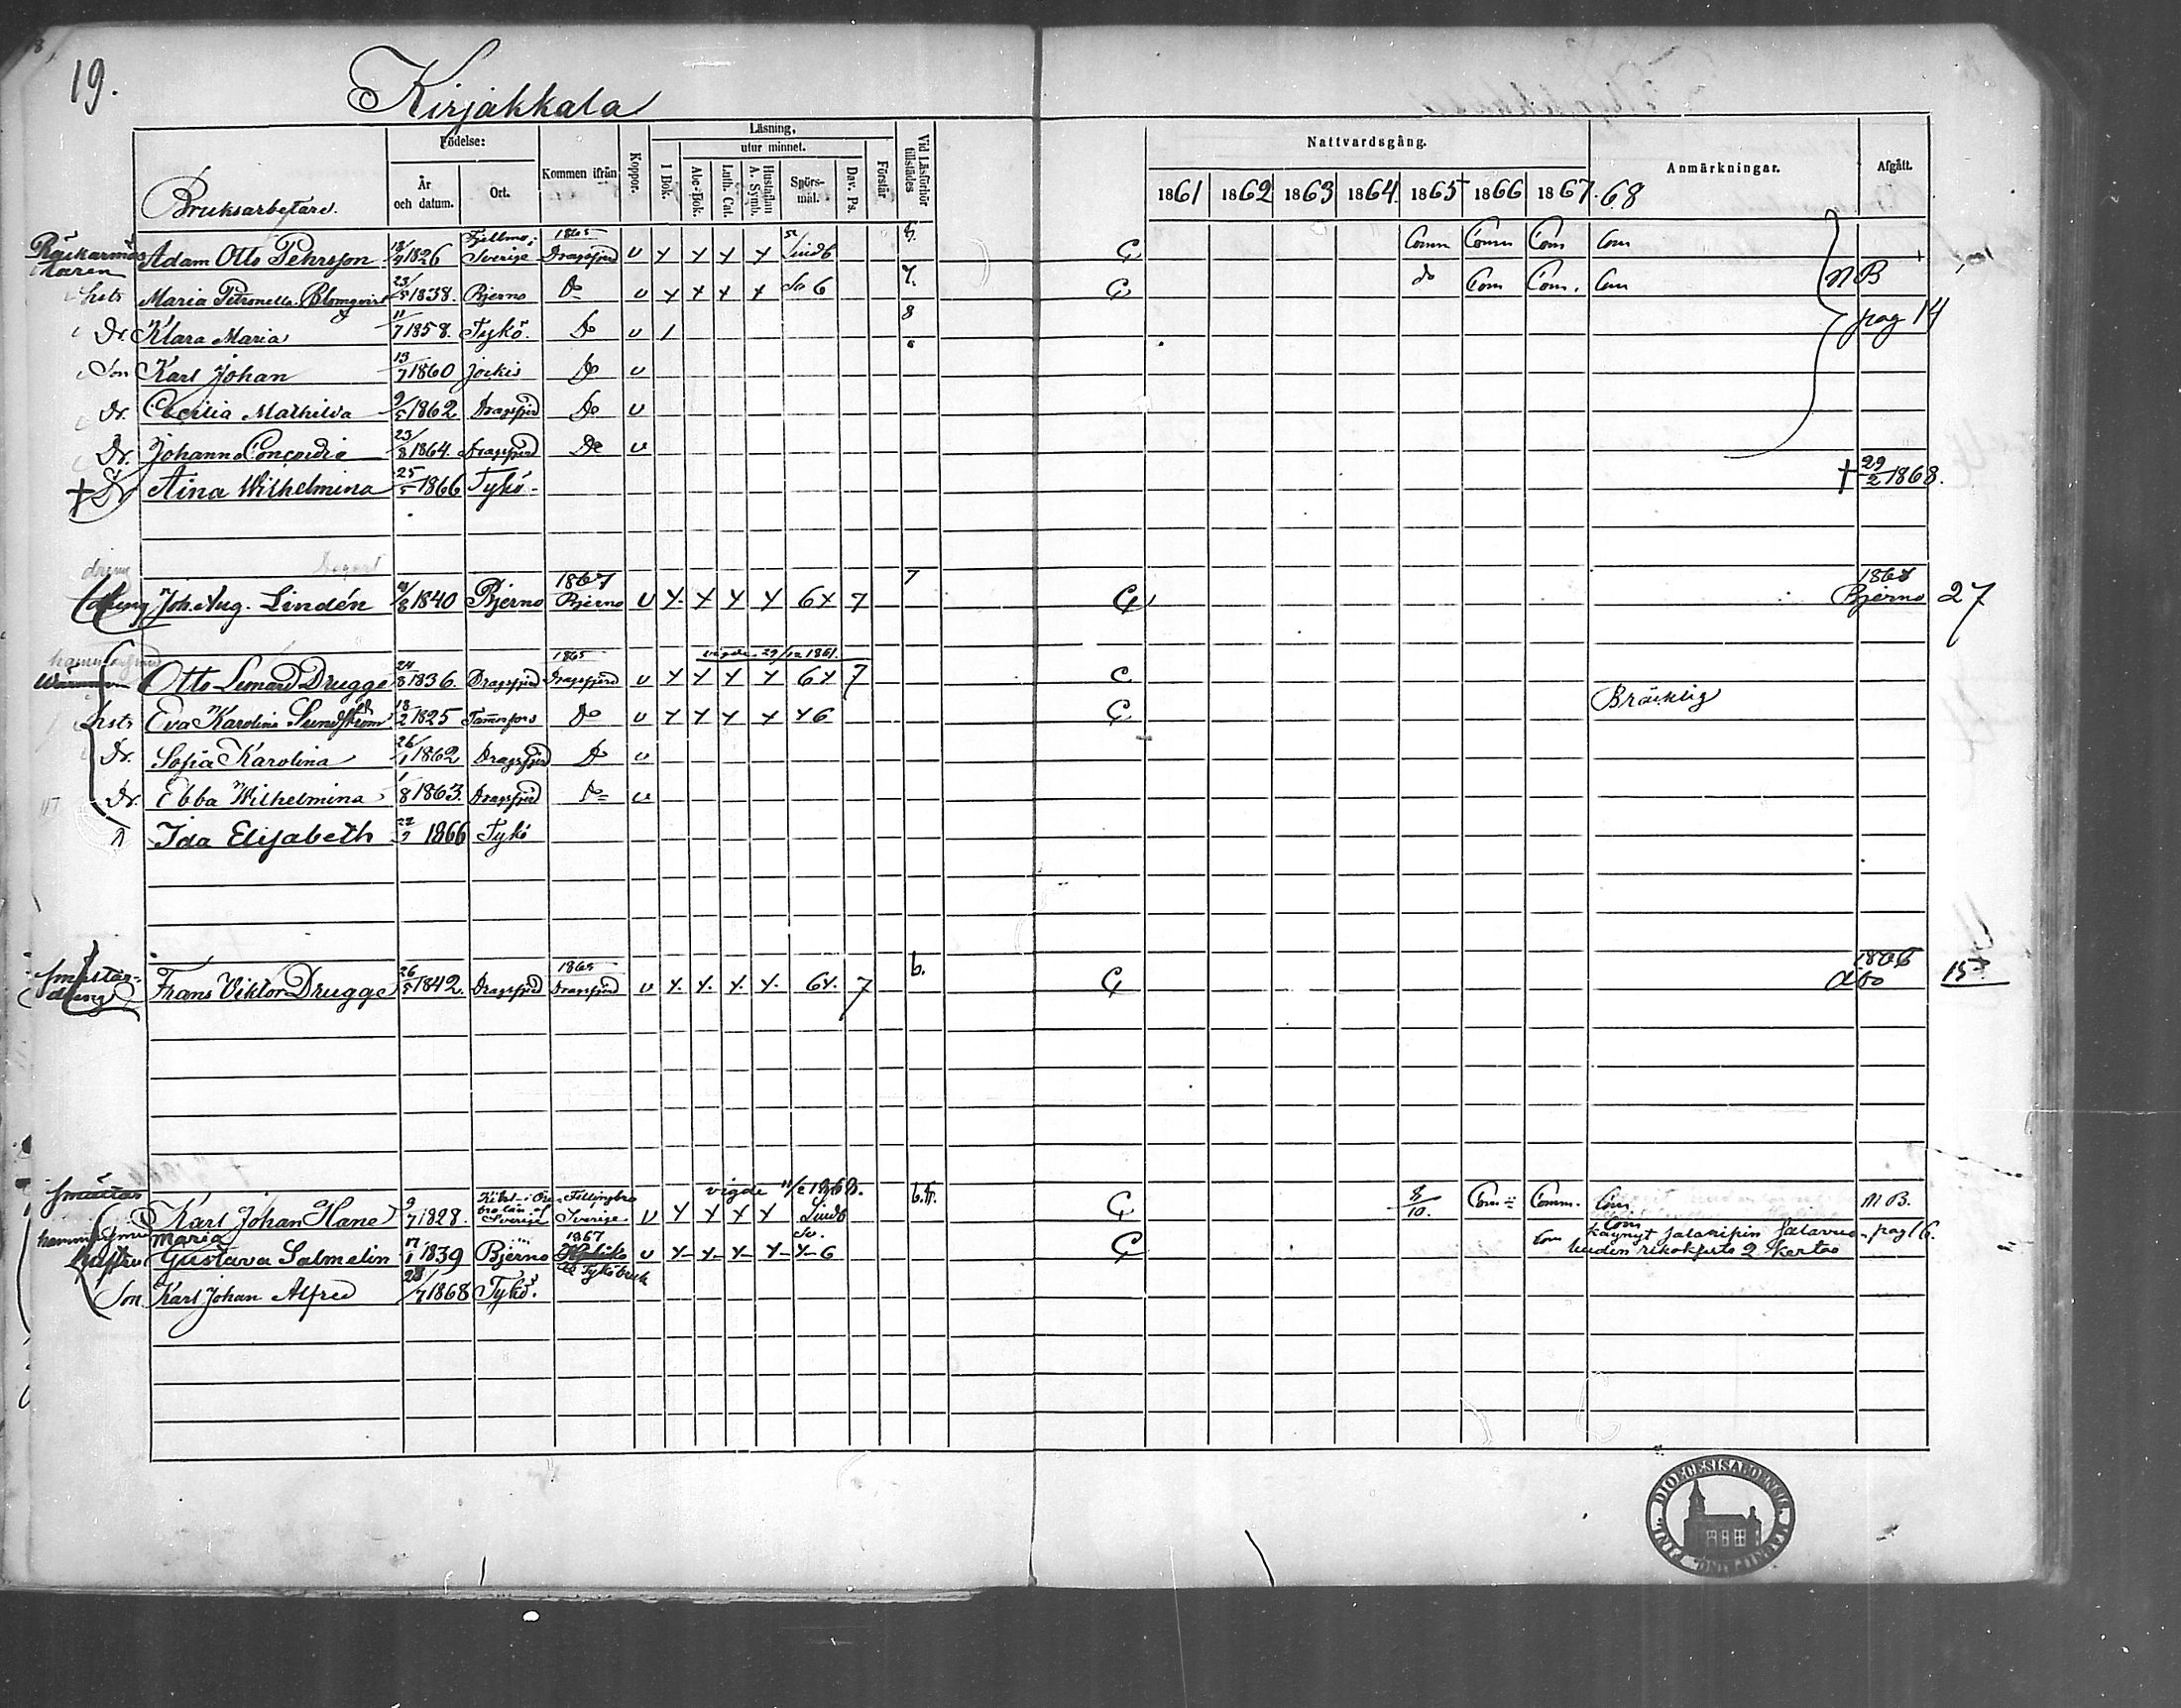 19.
Kirjakkala
Bruksarbetare.
Födelse:
År och datum.
Ort.
Kommen ifrån
Koppor.
Läsning,
I Bok.
utur minnet.
Abc-Bok.
Luth. Cat.
Hustaflan A. Symb.
Spörs-mål.
Dav. Ps.
Förstår.
Vid Läsförhör tillstädes
Nattvardsgång.
1861 1862 1863 1864 1865 1866 1867. 68
Anmärkningar.
Afgått.
Adam Otto Pehrsson 1826 Sverige 1865 Dragsfjerd v x x x x C Comm Comm Com Com
Hstr Maria Petronella Blomqvist 23/5 1838. Bjerno Do v x x x x So 6 7. C do Com Com. Com NB
Dr. Klara Maria 11/7 1858. Tykö. Do v 1 8 pag 14
Son Karl Johan 13/7 1860 Jockis Do v
Dr. Cecilia Mathilda 9/5 1862 Dragsfjerd Do v
Dr. Johanna Concordia 23/8 1864. Dragsfjerd Do v
† Dr Aina Wilhelmina 25/5 1866 Tykö. † 29/2 1868.
dreng Joh. Aug. Lindén /8 1840 Bjerno 1867 Bjerno v x x x x 6x 7 7 C 1868 Bjerno 27
vigde 29/12 1861.
Otto Lenard Drugge 24/8 1836. Dragsfjerd 1865 Dragsfjerd v x x x x 6x 7 C
Hstr Eva Karolina Sundström 18/2 1825 Tammerfors Do v x x x x x 6 C Bräcklig
Dr. Sofia Karolina 26/1 1862 Dragsfjerd Do v
Dr. Ebba Wilhelmina 1/8 1863. Dragsfjerd Do v
Ida Elisabeth 22/ 1866 Tykö
Smältar-dreng Frans Viktor Drugge 26/5 1842. Dragsfjerd 1865 Dragsfjerd v x. x. x. x. 6x. 7 6. C 1866 Åbo 15
Smältar
vigde 11/2 1868.
Karl Johan Hane 9/7 1828. Sverige Fellingbro Sverige v x x x x C 8/10. Com Comm. Com N.B.
Hustru Maria Gustava Salmelin 17/1 1839 Bjerno 1867 Tykö bruk v x x x x x 6 C Com Com pag 16.
Käynyt salaripin
2 kertaa
Son Karl Johan Alfred 28/7 1868 Tykö.